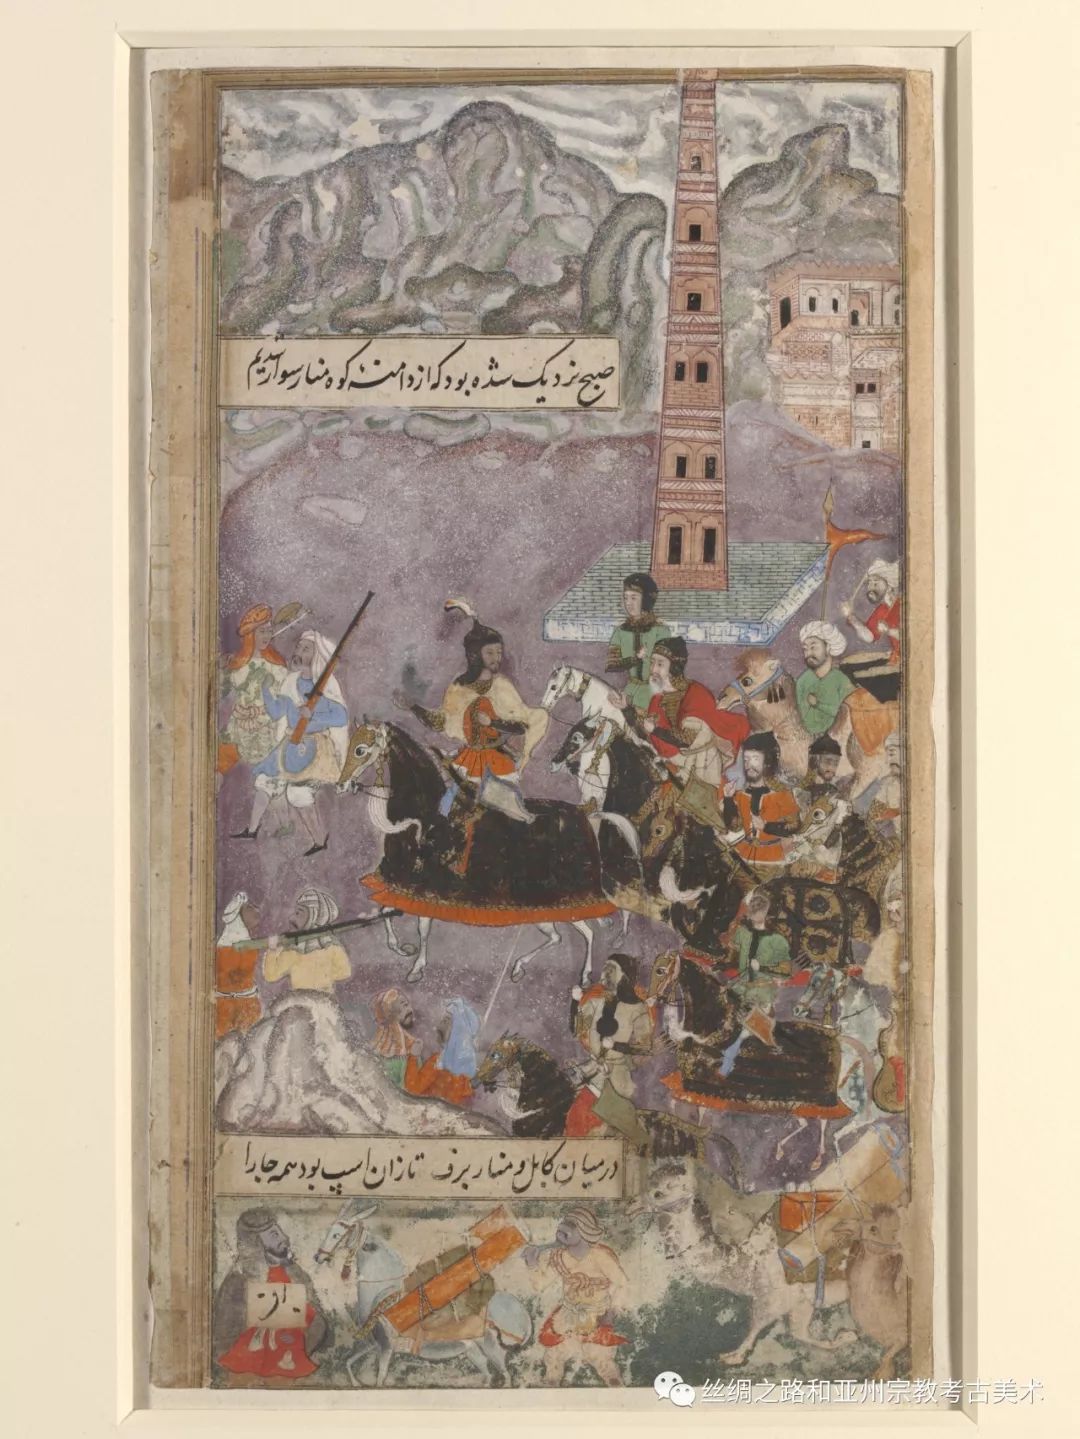 صبح نزدیک شده بود که از دامنهٔ کوه منار سوار شدیم
در میان کابل و منار برف تا زان اسپ بود همه جا را
丝绸之路和亚州宗教考古美术